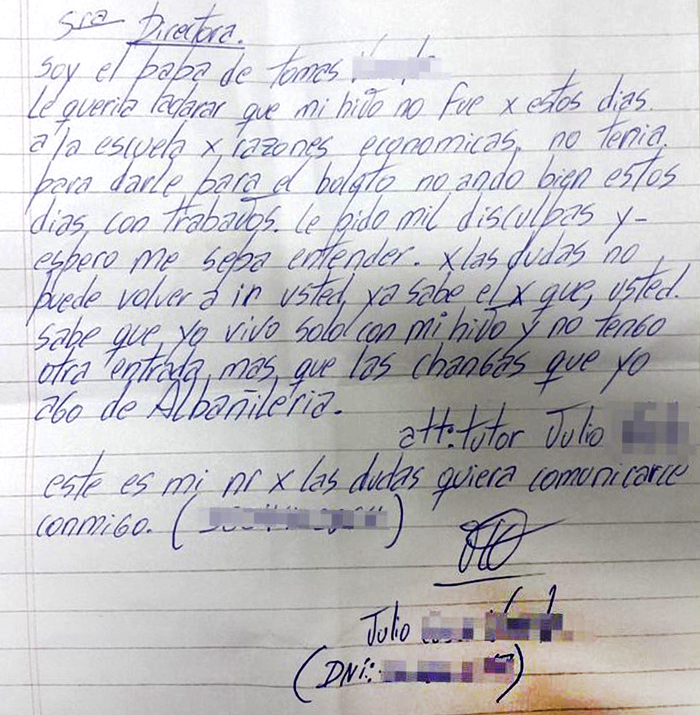 Sra Directora.
Soy el papa de Tomas
Le queria aclarar que mi hijo no fue x estos dias
a la escuela x razones economicas. no tenia
para darle para el boleto no ando bien estos
dias con trabajos. Le pido mil disculpas y-
espero me sepa entender. x las dudas no
puede volver a ir usted, ya sabe el x que, usted.
sabe que, yo vivo solo con mi hijo y no tengo
otra entrada, mas, que las changas que yo
ago de Albañileria.
att: tutor Julio
este es mi nr x las dudas quiera comunicarce
conmigo. (          )
Julio
(DNI:          )